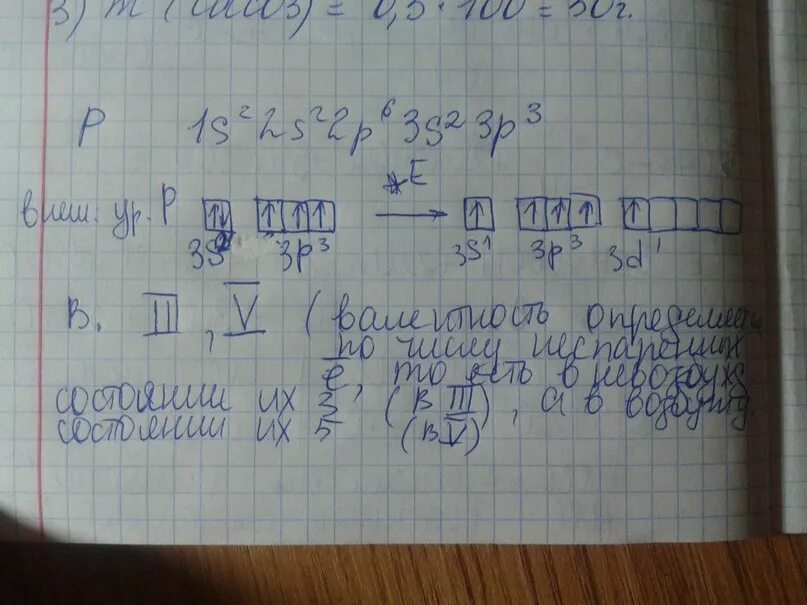 3) m (CaCO3) = 0,5 · 100 = 50г.
P 1s² 2s² 2p⁶ 3s² 3p³
*E
внеш. ур. P ↑↓ ↑ ↑ ↑ → ↑ ↑ ↑ ↑ ↑
3s² 3p³ 3s¹ 3p³ 3d¹
В. III, V (валентность определяется
по числу неспаренных
e, то есть в невозбужд
состоянии их 3 (В III), а в возбужд.
состоянии их 5 (В V)